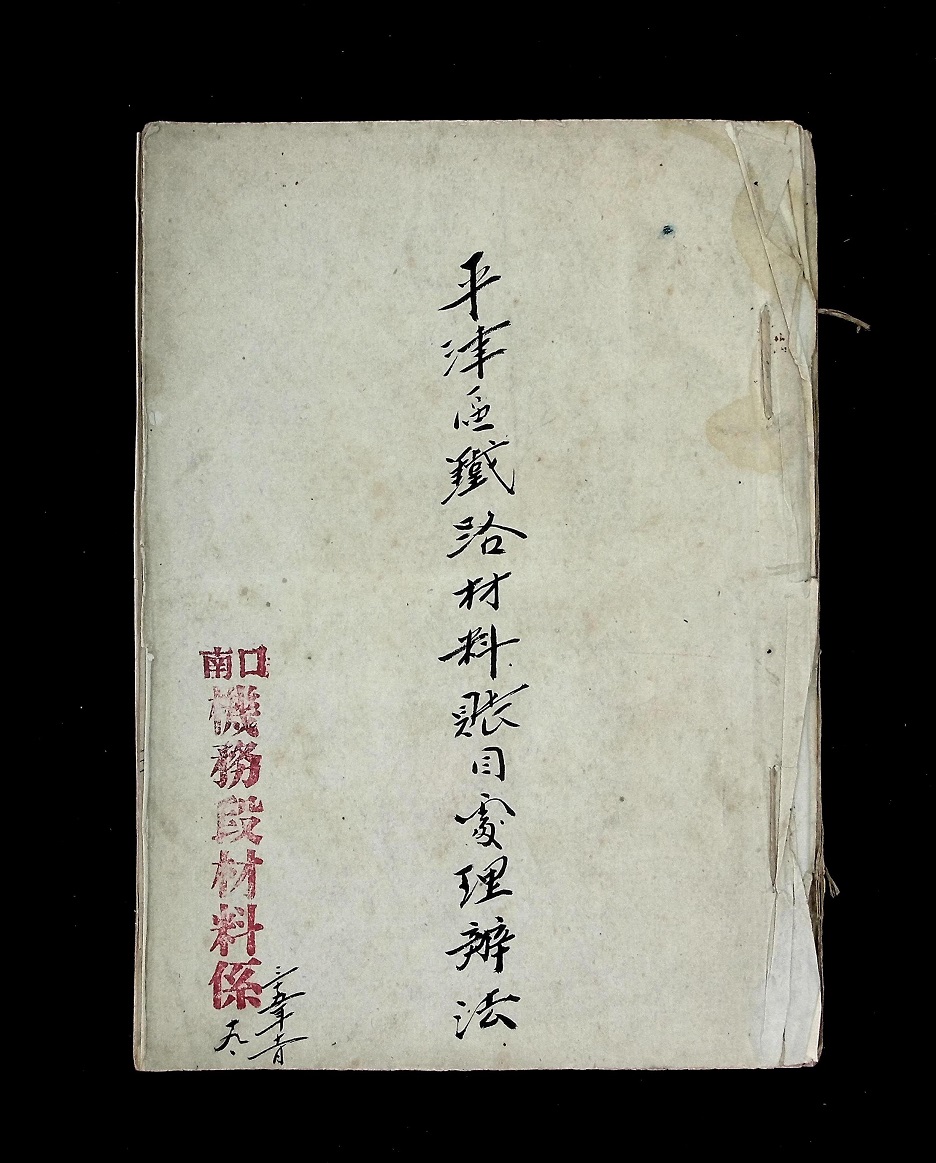 平津區鐵路材料賬目處理辦法
南口
機務段材料係
三十五年